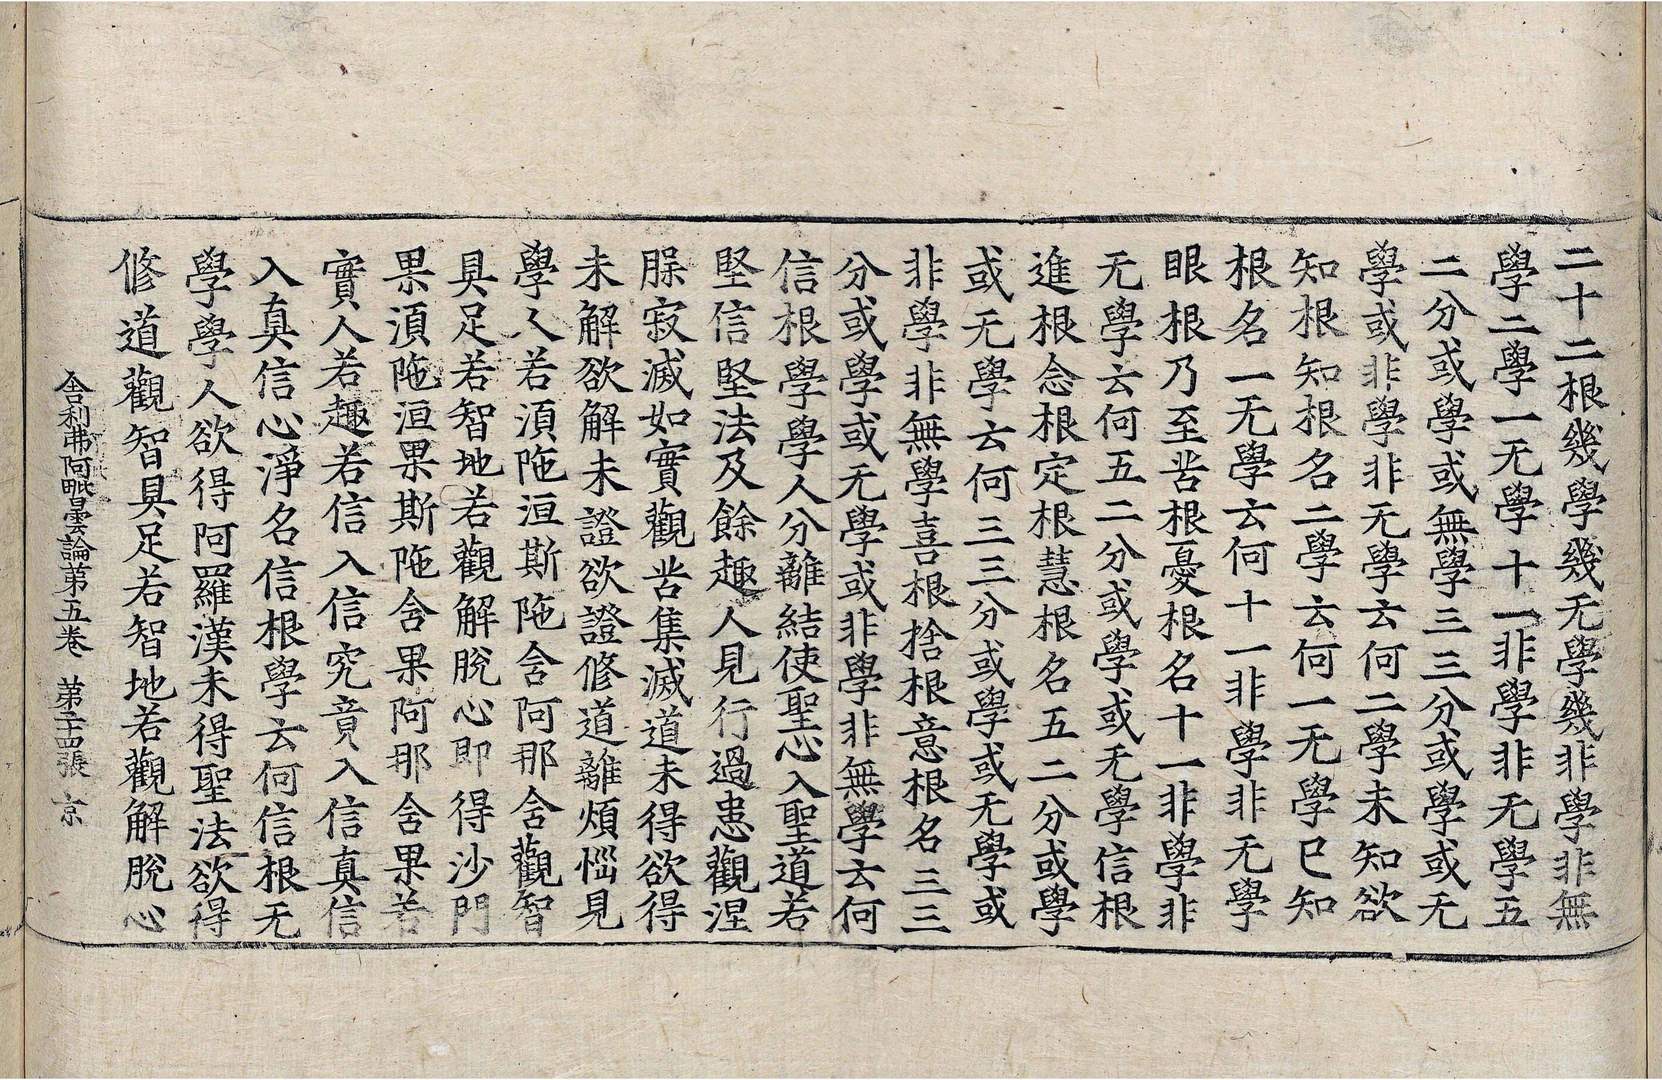 二十二根幾學幾无學幾非學非無
學二學一无學十一非學非无學五
二分或學或無學三三分或學或无
學或非學非无學云何二學未知欲
知根知根名二學云何一无學已知
根名一无學云何十一非學非无學
眼根乃至苦根憂根名十一非學非
无學云何五二分或學或无學信根
進根念根定根慧根名五二分或學
或无學云何三三分或學或无學或
非學非無學喜根捨根意根名三三
分或學或无學或非學非無學云何
信根學學人分離結使聖心入聖道若
堅信堅法及餘趣人見行過患觀涅
脲寂滅如實觀苦集滅道未得欲得
未解欲解未證欲證修道離煩惱見
學人若湏陁洹斯陁含阿那含觀智
具足若智地若觀解脫心即得沙門
果湏陁洹果斯陁含果阿那含果若
實人若趣若信入信究竟入信真信
入真信心淨名信根學云何信根无
學學人欲得阿羅漢未得聖法欲得
修道觀智具足若智地若觀解脫心
舍利弗阿毗曇論第五卷 第二十四張 京